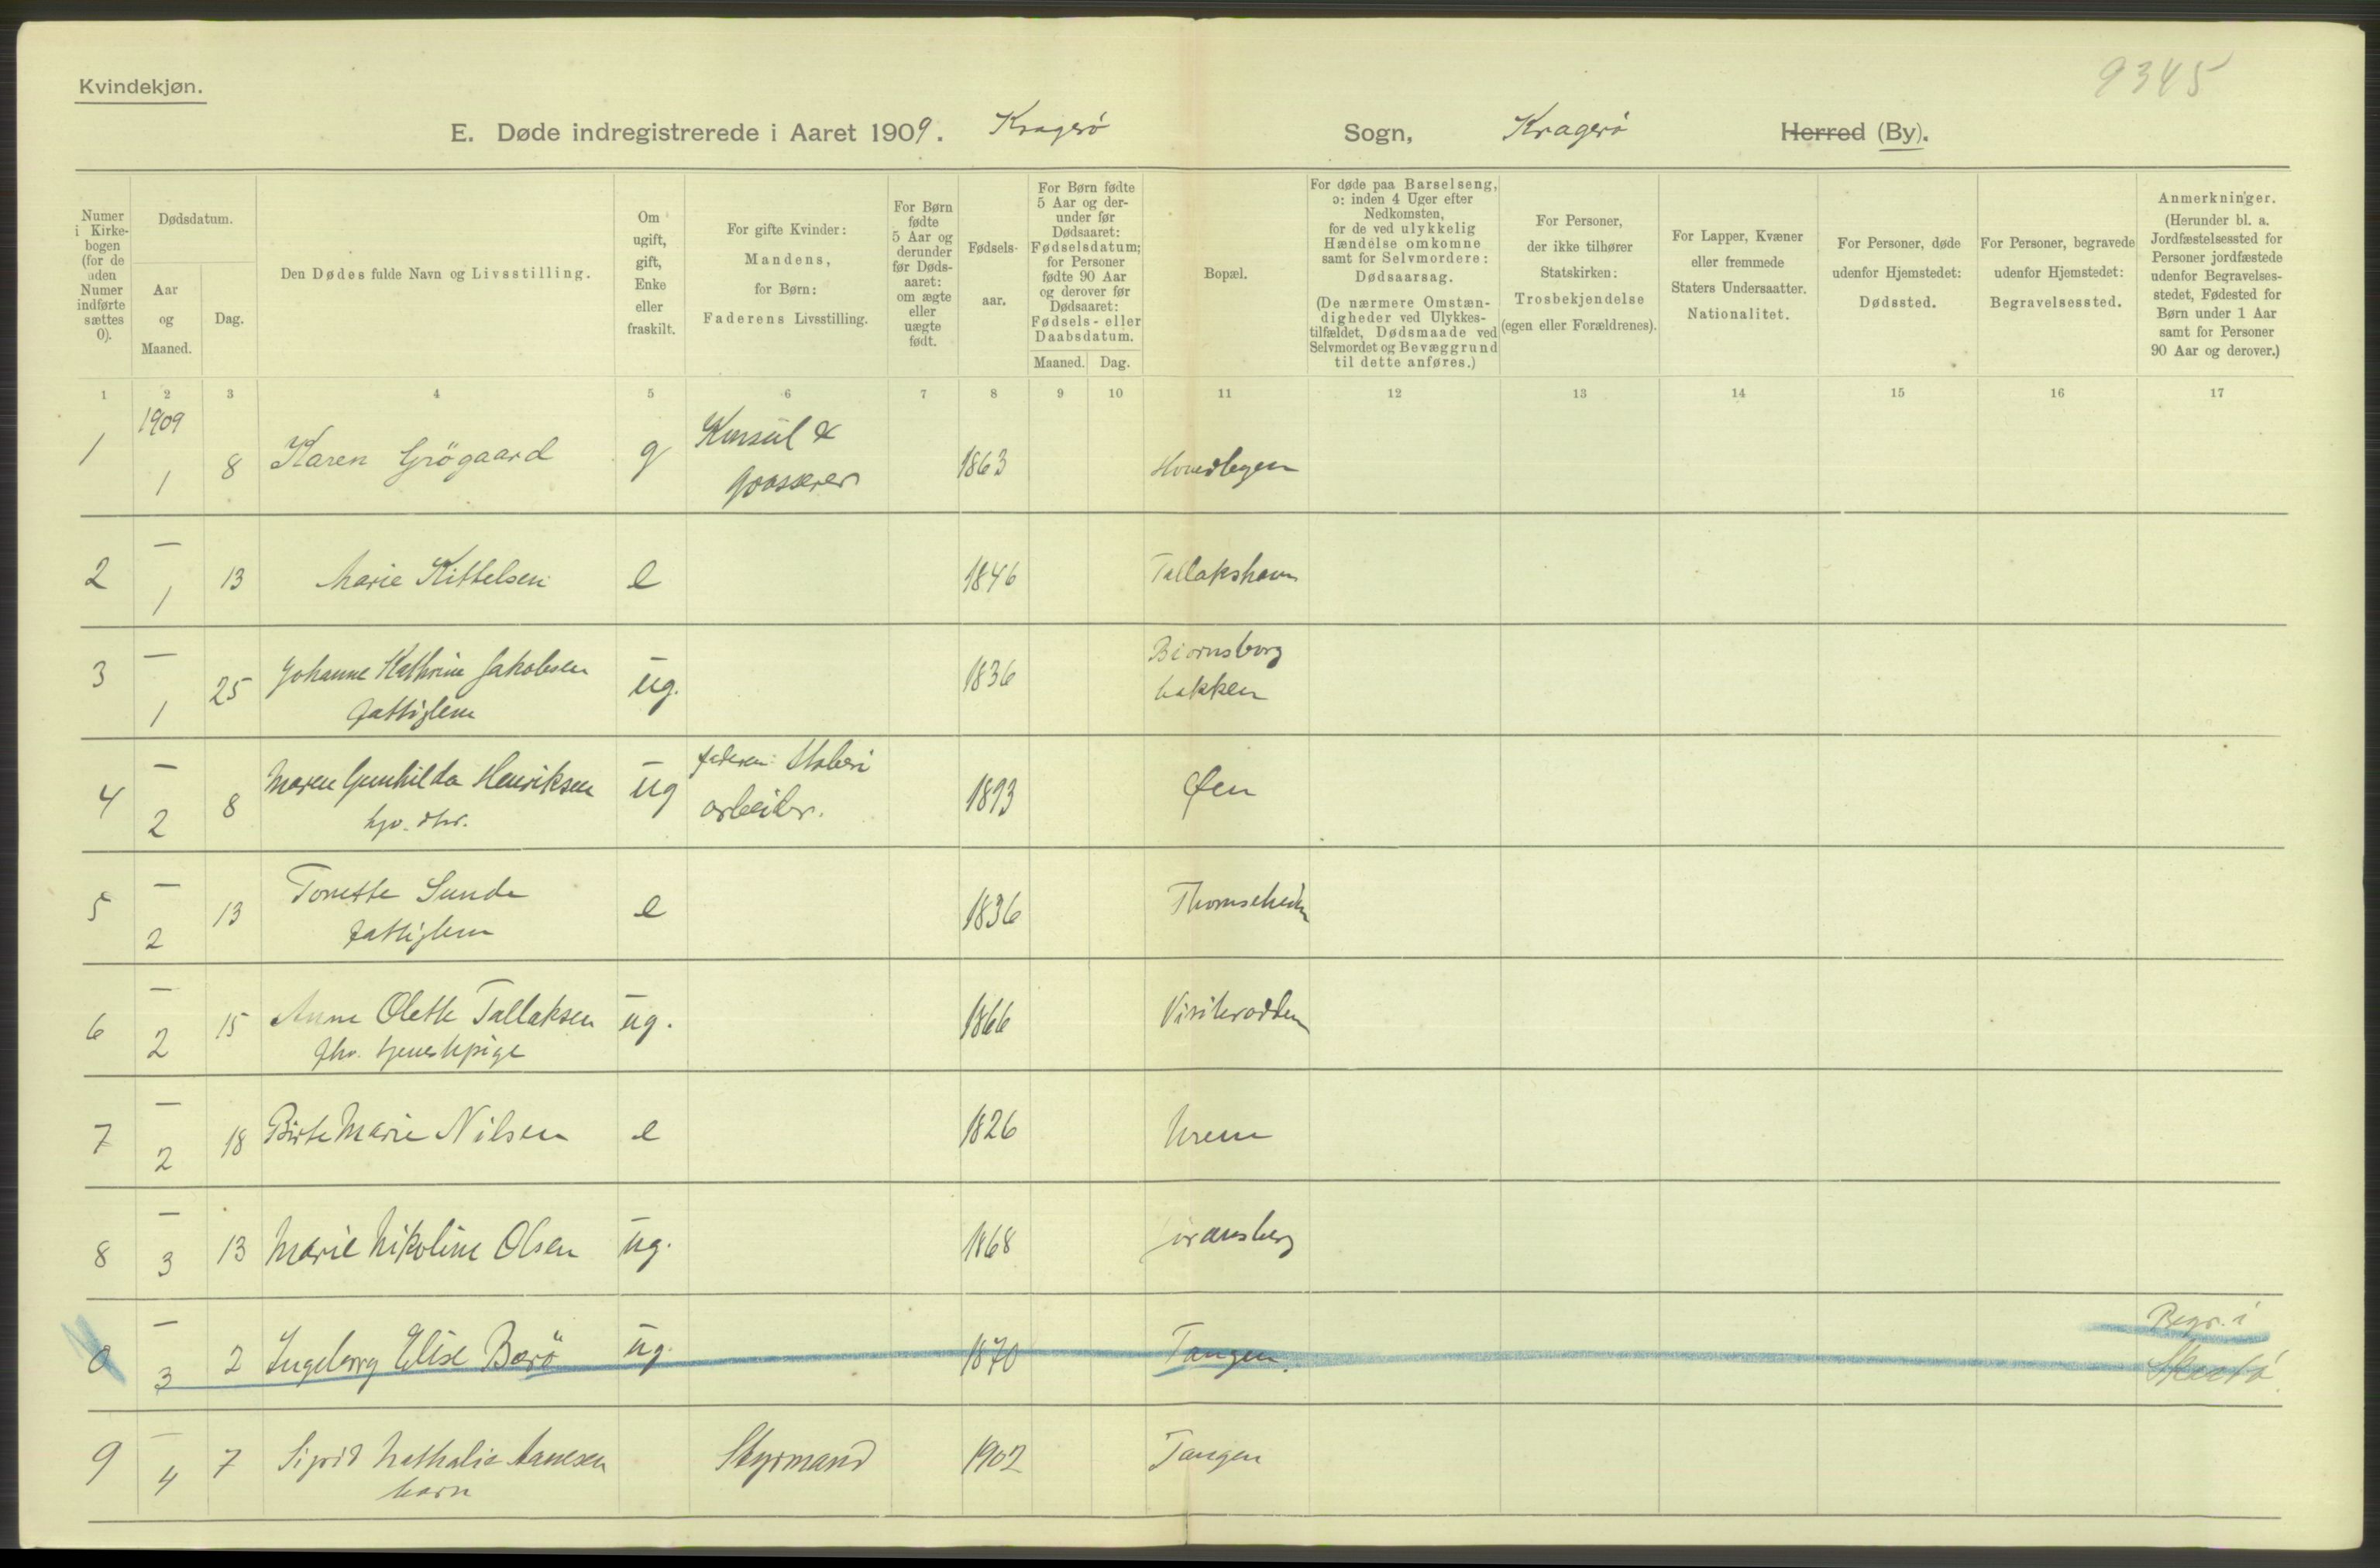 9345
Kvindekjøn.
E. Døde indregistrerede i Aaret 1909. Kragerö Sogn, Kragerö Herred (By).
Numer i Kirkebogen (for de uden Numer indførte sættes 0).
Dødsdatum.
Aar og Maaned.
Dag.
Den Dødes fulde Navn og Livsstilling.
Om ugift, gift, Enke eller fraskilt.
For gifte Kvinder: Mandens, for Børn: Faderens Livsstilling.
For Børn fødte 5 Aar og derunder før Dødsaaret: om ægte eller uægte født.
Fødselsaar.
For Børn fødte 5 Aar og derunder før Dødsaaret: Fødselsdatum; for Personer fødte 90 Aar og derover før Dødsaaret: Fødsels- eller Daabsdatum.
Maaned. Dag.
Bopæl.
For døde paa Barselseng, ɔ: inden 4 Uger efter Nedkomsten, for de ved ulykkelig Hændelse omkomne samt for Selvmordere: Dødsaarsag.
(De nærmere Omstændigheder ved Ulykkestilfældet, Dødsmaade ved Selvmordet og Bevæggrund til dette anføres.)
For Personer, der ikke tilhører Statskirken: Trosbekjendelse (egen eller Forældrenes).
For Lapper, Kvæner eller fremmede Staters Undersaatter. Nationalitet.
For Personer, døde udenfor Hjemstedet: Dødssted.
For Personer, begravede udenfor Hjemstedet: Begravelsessted.
Anmerkninger.
(Herunder bl. a. Jordfæstelsessted for Personer jordfæstede udenfor Begravelsesstedet, Fødested for Børn under 1 Aar samt for Personer 90 Aar og derover.)
1 2 3 4 5 6 7 8 9 10 11 12 13 14 15 16 17
1909
1 1 8 Karen Grögaard g Konsul & Grosserer 1863
2 — 1 13 Marie Kittelsen e 1846 Tallakshavn
3 — 1 25 Johanne Kathrine Jakobsen ug. 1836 Biornsborg
fattiglem bakken
4 — 2 8 Maren Gunhilda Henriksen ug faderen: arbeider. 1893 Øen
5 — 2 13 Tonette Sunde e 1836
fattiglem
6 — 2 15 Anne Olette Tallaksen ug. 1866
fhv. tjenestepige
7 — 2 18 Birte Marie Nilsen e 1826
8 — 3 13 Marie Nikoline Olsen ug. 1868
0 — 3 2 Ingeborg Elise Barö ug. 1870 Tangen. Begr. i
Skaatö
9 — 4 7 Sigrid Nathalie Aanesen Styrmand 1902 Tangen
barn